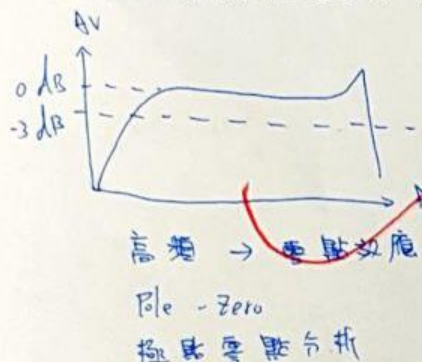 AV
0 dB
-3 dB
高頻 → 零點效應
Pole - Zero
極點零點分析